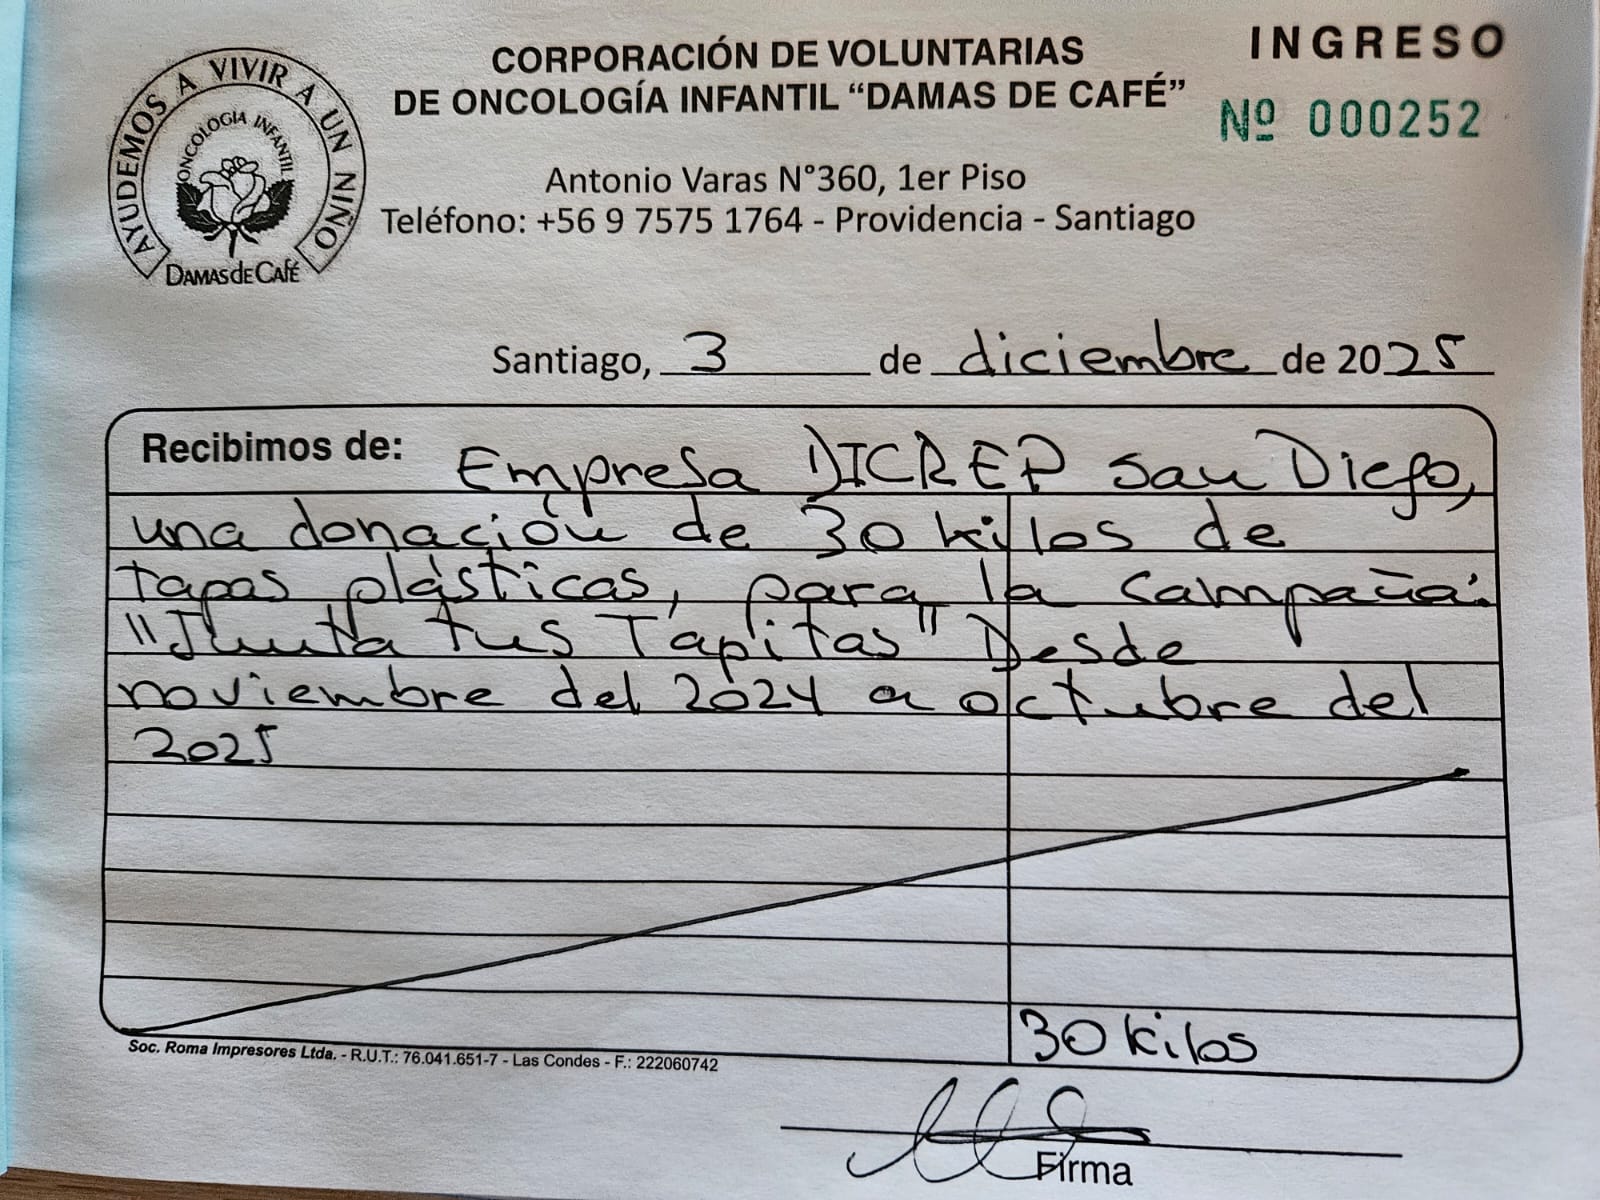 AYUDEMOS A VIVIR A UN NIÑO
ONCOLOGÍA INFANTIL
DAMAS dE CAfÉ
CORPORACIÓN DE VOLUNTARIAS
DE ONCOLOGÍA INFANTIL “DAMAS DE CAFÉ”
Antonio Varas N°360, 1er Piso
Teléfono: +56 9 7575 1764 - Providencia - Santiago
INGRESO
Nº 000252
Santiago, 3 de diciembre de 2025
Recibimos de: Empresa DICREP San Diego,
una donación de 30 kilos de
tapas plásticas, para la campaña:
"Junta tus Tapitas" Desde
noviembre del 2024 a octubre del
2025
30 kilos
Soc. Roma Impresores Ltda. - R.U.T.: 76.041.651-7 - Las Condes - F.: 222060742
Firma